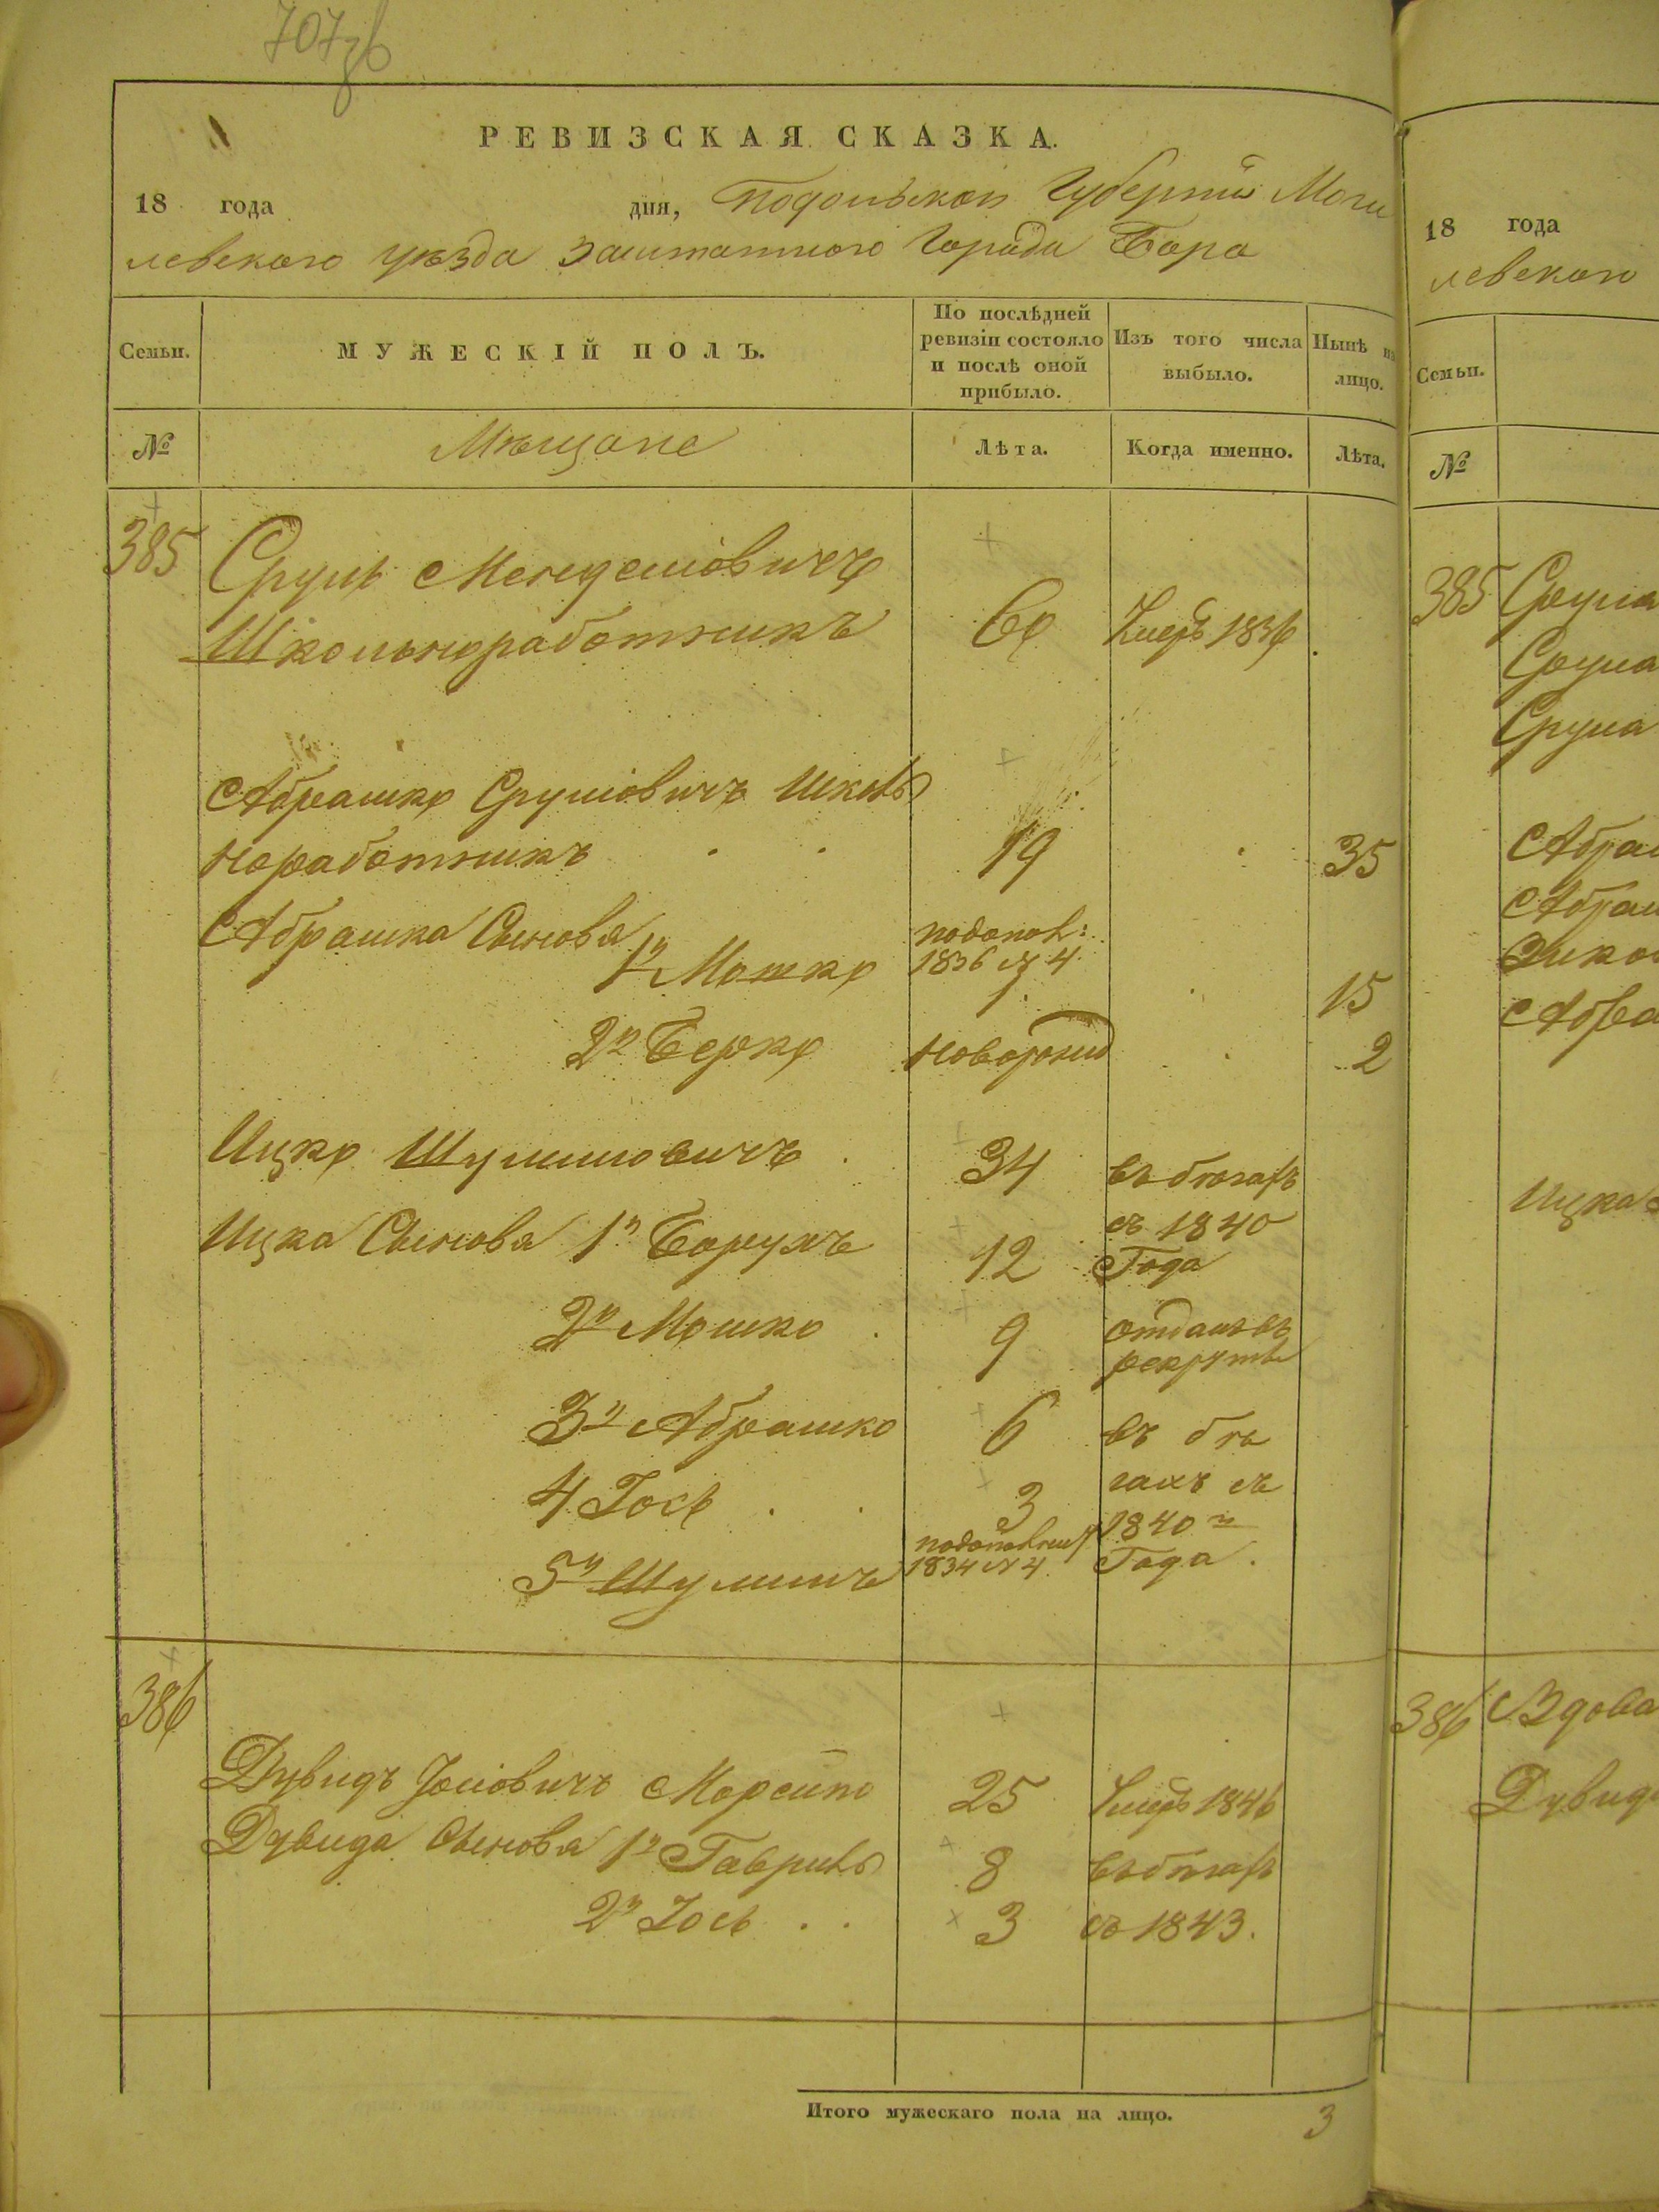 707зв
РЕВИЗСКАЯ СКАЗКА.
18 года дня, Подольской Губернiи Моги
левского уѣзда Заштатного Города Бара
Семьи. МУЖЕСКIЙ ПОЛЪ. По послѣдней ревизiи состояло и послѣ оной прибыло. Изъ того числа выбыло. Нынѣ на лицо.
№ Мѣщане Лѣта. Когда именно. Лѣта.
385 Сруль Менделiовичъ
Школьноработникъ 60 Умеръ 1836
Абрашко Срулiовичъ Школь
норабoтникъ 19 35
Абрашка Сыновя
1й Мошко подопол: 1836 № 4 15
2й Берко новорожд 2
Ицко Шулимовичъ 34 въ бѣгахъ
Ицка Сыновя 1й Борухъ 12 съ 1840 Года
2й Мошко 9 отданъ въ рекруты
3й Абрашко 6 въ бѣ
4 Iось 3 гахъ съ
1840 го
5й Шулимъ 1834 № 4 Года.
386
Дувидъ Iосiовичъ 25 Умеръ 1846
Дувида Сыновя 1й Гавриль 8 въ бѣгахъ
2й Iось 3 съ 1843.
Итого мужескаго пола на лицо. 3
18 года
левского
Семьи.
№
385 Сруля
Сруля
Сруля
Абраш
Абраш
Абра
Ицка
386 Вдова
Дувида